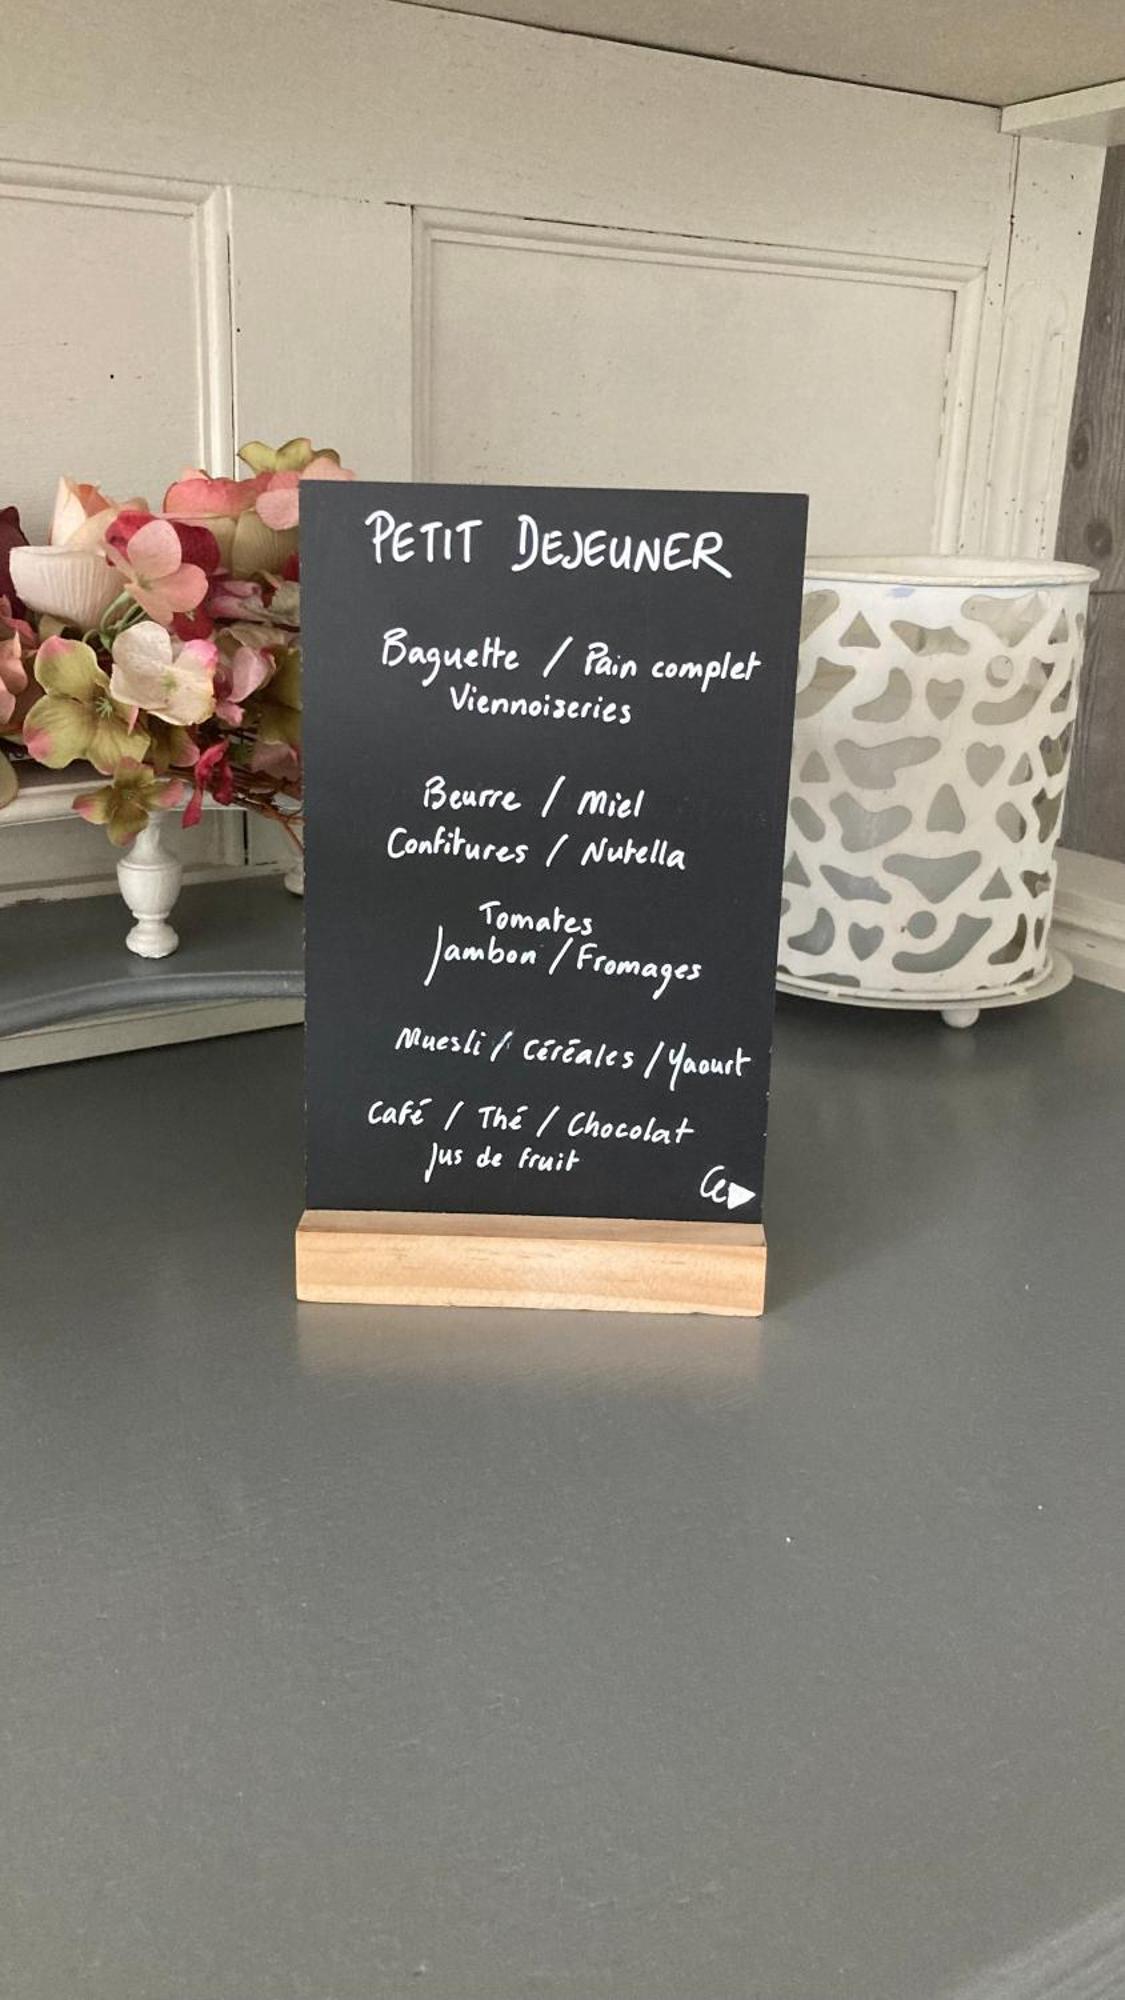 PETIT DEJEUNER
Baguette / Pain complet
Viennoiseries
Beurre / Miel
Confitures / Nutella
Tomates
Jambon / Fromages
Muesli / Céréales / Yaourt
Café / Thé / Chocolat
Jus de fruit